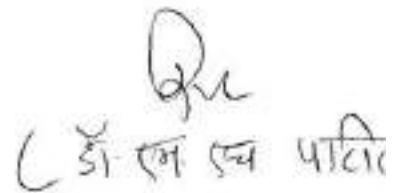 ( डॉ. एम. एच पाटील